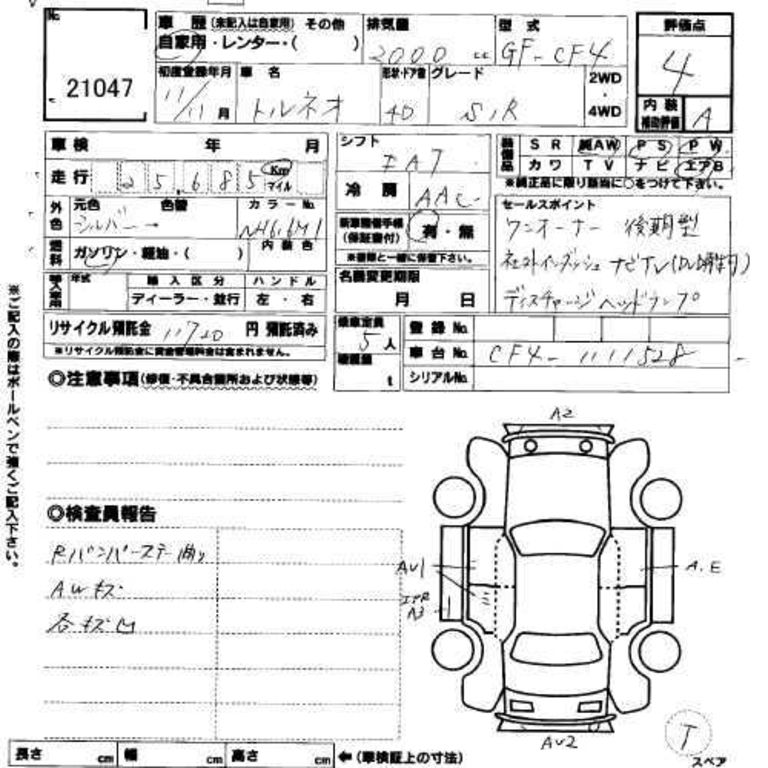 No. 21047
車歴 (未記入は自家用) その他
自家用・レンター・( )
排気量 2000 cc
型式 GF-CF4
評価点 4
内装補助評価 A
初度登録年月 11/11月
車名 トルネオ
形状・ドア数 4D
グレード SiR
2WD・4WD
車検 年 月
走行 25,685 Km マイル
シフト FAT
冷房 AAC
装備品 SR 純AW PS PW
カワ TV ナビ エアB
※純正品に限り該当に○をつけて下さい。
外色 元色 色替 カラーNo.
シルバー→
燃料 ガソリン・軽油・( ) 内装色
新車整備手帳(保証書付) 有・無
※書類と一緒に保管下さい。
セールスポイント
ワンオーナー 後期型
ディスチャージヘッドランプ
輸入車用 年式 輸入区分 ハンドル
ディーラー・並行 左・右
名義変更期限
月 日
リサイクル預託金 11720 円 預託済み
※リサイクル預託金に資金管理料金は含まれません。
乗車定員 5人
積載量 t
登録No.
車台No. CF4-1111528
シリアルNo.
◎注意事項(修復・不具合箇所および状態等)
◎検査員報告
Rバンパーステー曲り
AWキズ
各キズ凹
A2
AU1
A3
A.E
AU2
T
スペア
長さ cm 幅 cm 高さ cm ←(車検証上の寸法)
※ご記入の際はボールペンで強くご記入下さい。